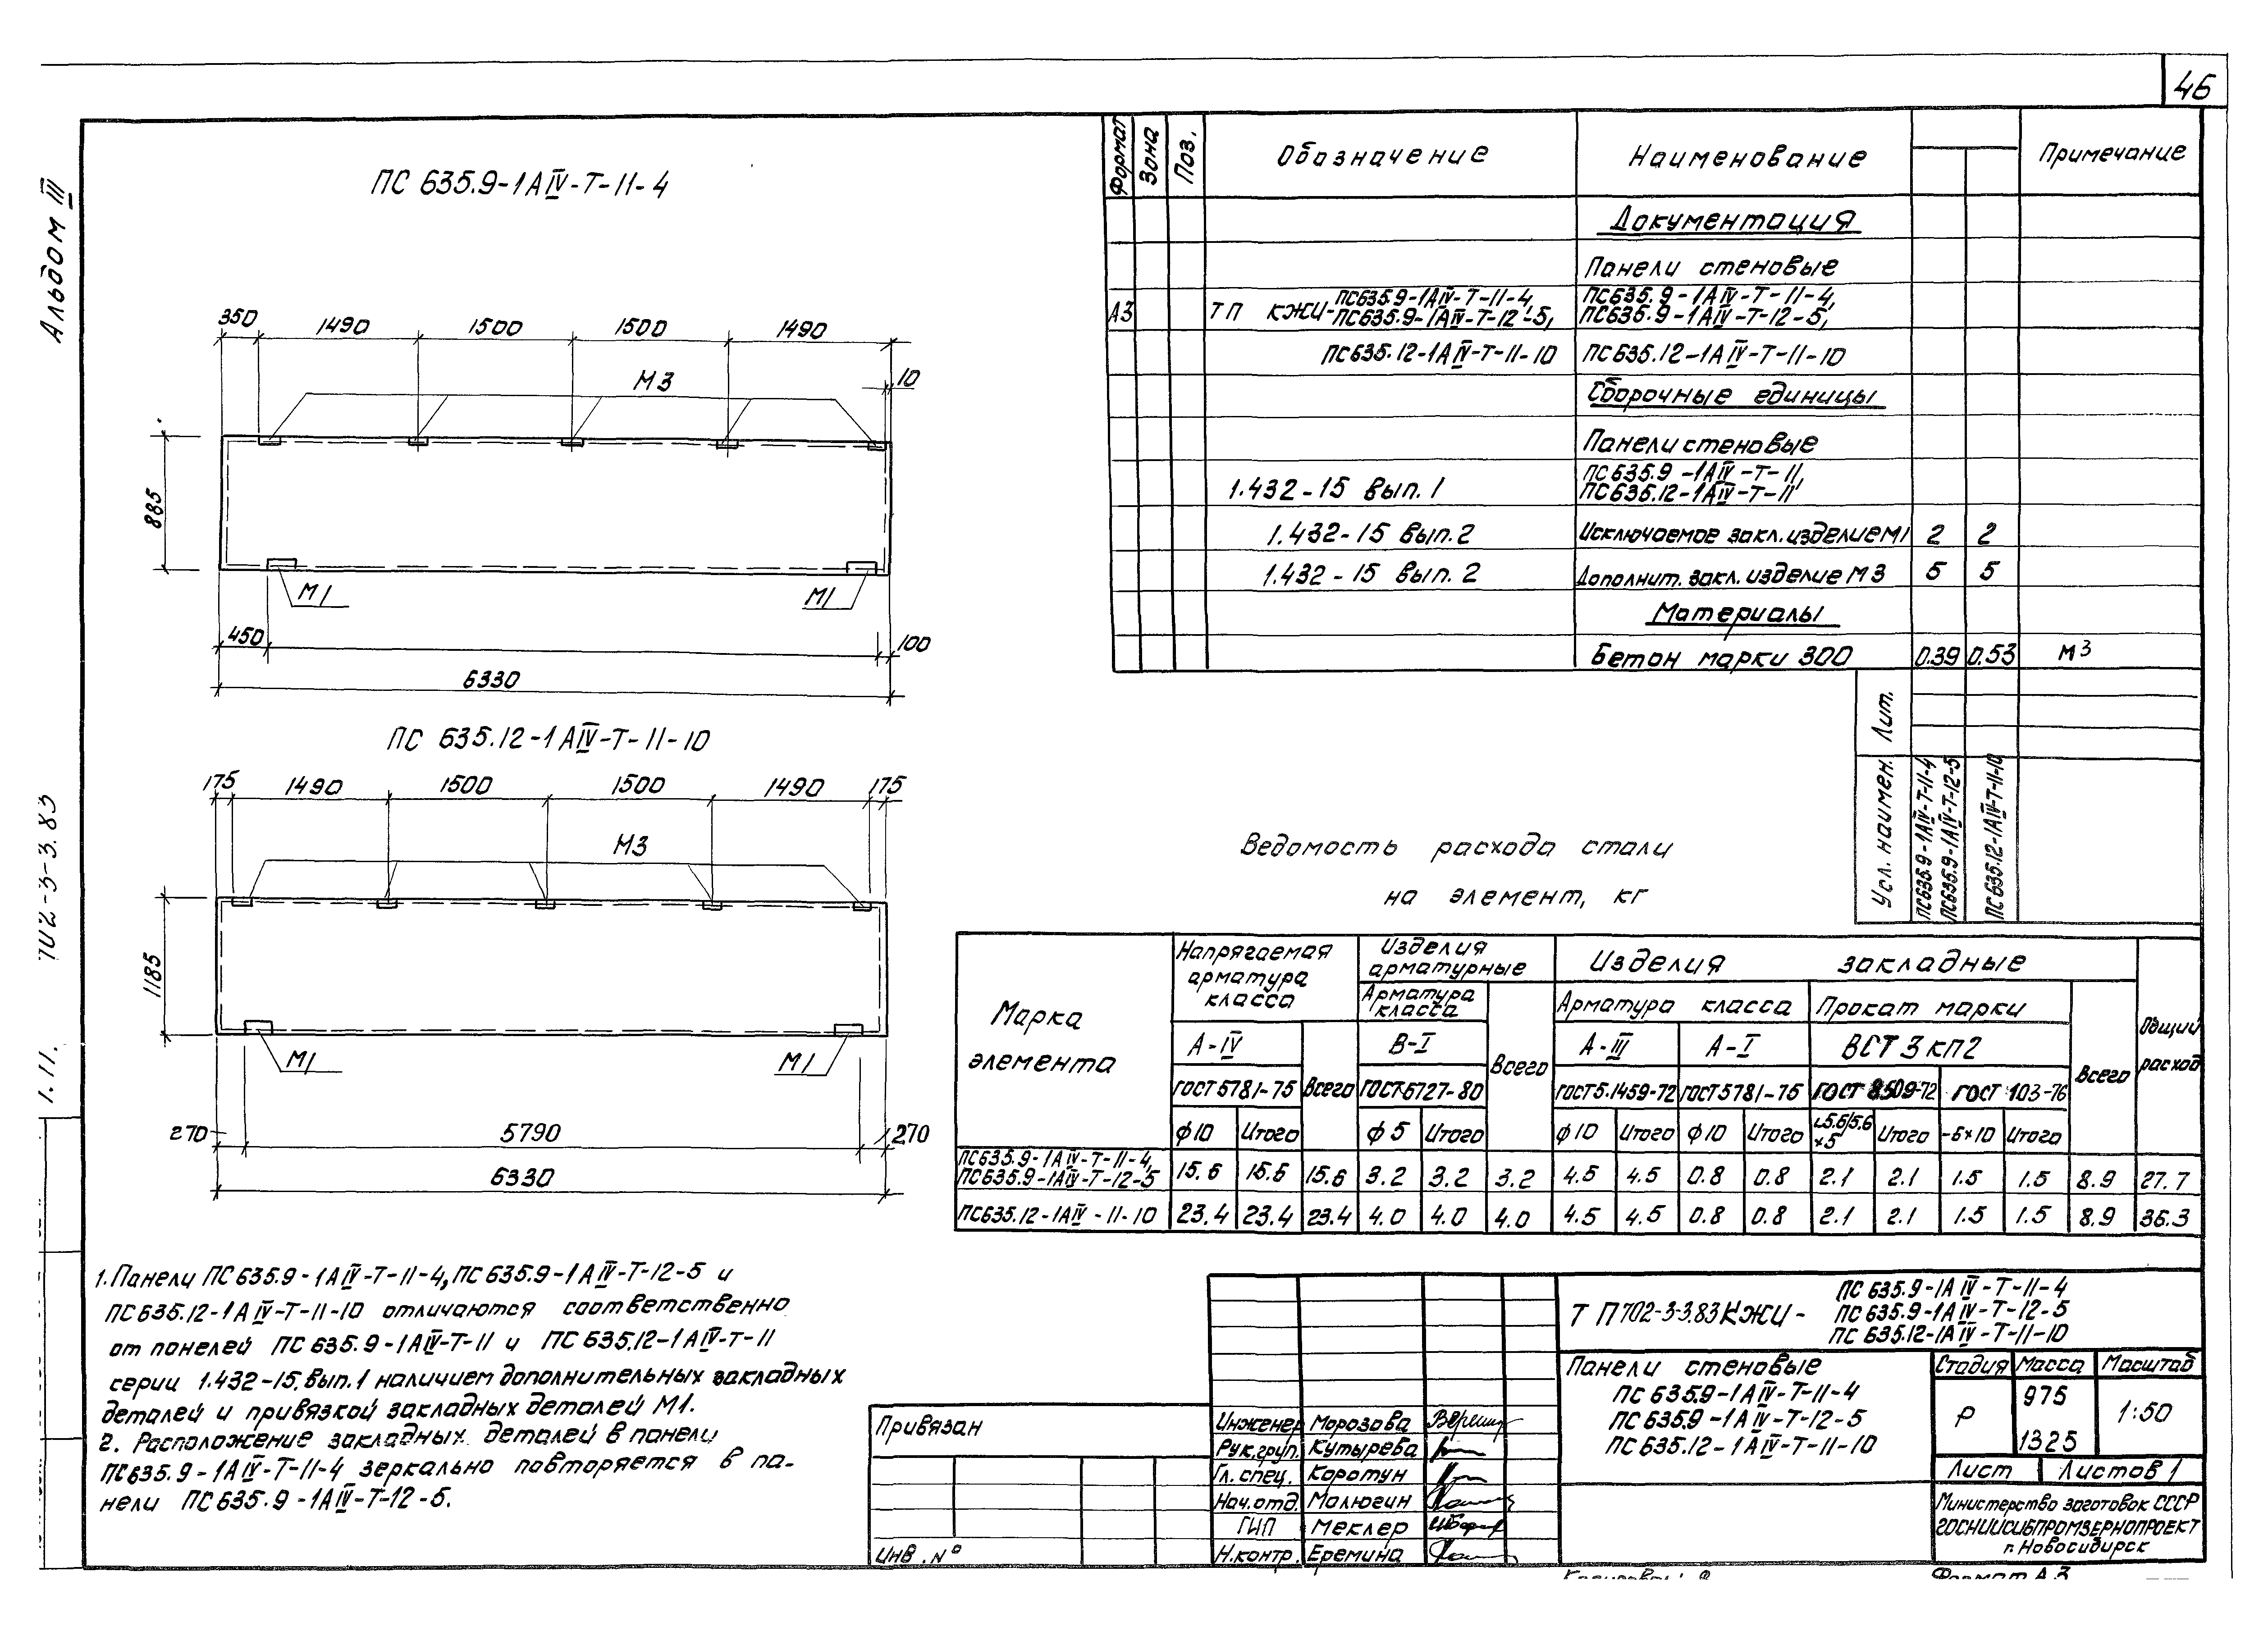 46
Альбом III
702-3-3.83
1.11.
ПС 635.9-1АIV-Т-11-4
350 1490 1500 1500 1490
10
М3
885
М1 М1
450 100
6330
ПС 635.12-1АIV-Т-11-10
175 1490 1500 1500 1490 175
М3
1185
М1 М1
270 5790 270
6330
1. Панели ПС 635.9-1АIV-Т-11-4, ПС 635.9-1АIV-Т-12-5 и
ПС 635.12-1АIV-Т-11-10 отличаются соответственно
от панелей ПС 635.9-1АIV-Т-11 и ПС 635.12-1АIV-Т-11
серии 1.432-15. Вып.1 наличием дополнительных закладных
деталей и привязкой закладных деталей М1.
2. Расположение закладных деталей в панели
ПС635.9-1АIV-Т-11-4 зеркально повторяется в па-
нели ПС 635.9-1АIV-Т-12-5.
Формат Зона Поз. Обозначение Наименование Примечание
Документация
Панели стеновые
А3 ТП КЖИ- ПС635.9-1АIV-Т-11-4, ПС635.9-1АIV-Т-11-4,
ПС635.9-1АIV-Т-12-5, ПС635.9-1АIV-Т-12-5,
ПС635.12-1АIV-Т-11-10 ПС635.12-1АIV-Т-11-10
Сборочные единицы
Панели стеновые
1.432-15 вып. 1 ПС635.9-1АIV-Т-11,
ПС635.12-1АIV-Т-11
1.432-15 вып.2 Исключаемое закл.изделие М1 2 2
1.432-15 вып. 2 Дополнит. закл. изделие М3 5 5
Материалы
Бетон марки 300 0.39 0.53 М3
Лит.
Усл. наимен. ПС635.9-1АIV-Т-11-4 ПС635.9-1АIV-Т-12-5 ПС635.12-1АIV-Т-11-10
Ведомость расхода стали
на элемент, кг
Марка элемента
Напрягаемая арматура класса
Изделия арматурные
Изделия закладные
Общий расход
Арматура класса Всего Арматура класса Прокат марки Всего
А-IV В-I А-III А-I ВСТ3кп2
ГОСТ5781-75 Всего ГОСТ6727-80 ГОСТ5.1459-72 ГОСТ5781-75 ГОСТ 8509-72 ГОСТ 103-76
ф10 Итого ф5 Итого ф10 Итого ф10 Итого Итого -6×10 Итого
ПС635.9-1АIV-Т-11-4,
ПС635.9-1АIV-Т-12-5 15.6 15.6 15.6 3.2 3.2 3.2 4.5 4.5 0.8 0.8 2.1 2.1 1.5 1.5 8.9 27.7
ПС635.12-1АIV-11-10 23.4 23.4 23.4 4.0 4.0 4.0 4.5 4.5 0.8 0.8 2.1 2.1 1.5 1.5 8.9 36.3
ТП702-3-3.83 КЖИ- ПС 635.9-1АIV-Т-11-4
ПС 635.9-1АIV-Т-12-5
ПС 635.12-1АIV-Т-11-10
Панели стеновые
ПС 635.9-1АIV-Т-11-4
ПС 635.9-1АIV-Т-12-5
ПС 635.12-1АIV-Т-11-10
Стадия Масса Масштаб
Р 975 1:50
1325
Лист Листов 1
Министерство заготовок СССР
ГОСНИИСИБПРОМЗЕРНОПРОЕКТ
г.Новосибирск
Привязан
Инв. №
Инженер Морозова
Рук.груп. Кутырева
Гл. спец. Коротун
Нач.отд. Малюгин
ГИП Меклер
Н.контр. Еремина
Формат А3